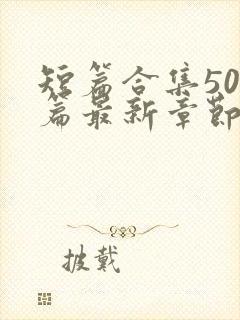 短篇合集50
篇最新章节
披戴